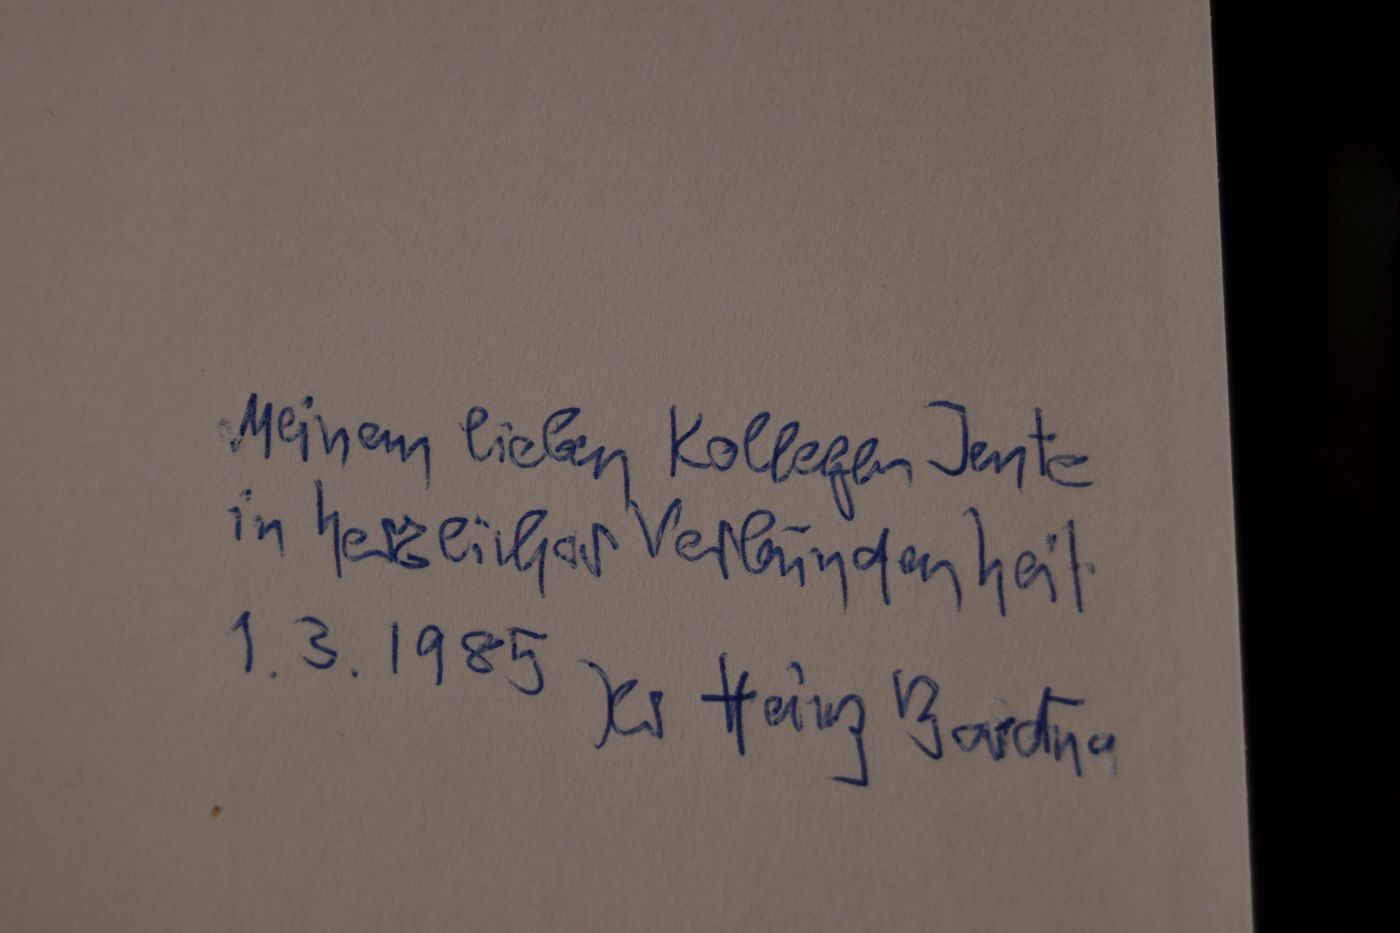 Meinem lieben Kollegen Jente
in herzlicher Verbundenheit
1.3.1985
Ihr Heinz Bardua